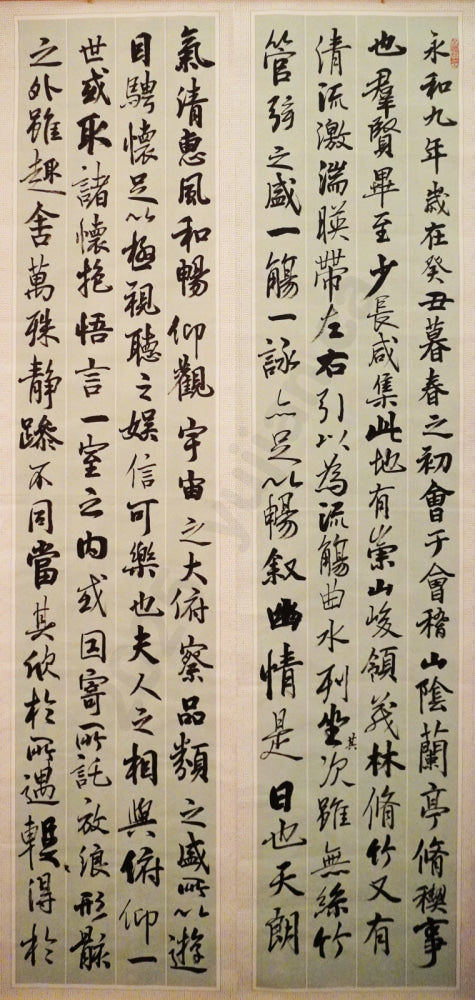 永和九年歲在癸丑暮春之初會于會稽山陰蘭亭脩稧事
也羣賢畢至少長咸集此地有崇山峻領茂林脩竹又有
清流激湍暎帶左右引以為流觴曲水列坐其次雖無絲竹
管弦之盛一觴一詠亦足以暢叙幽情是日也天朗
氣清惠風和暢仰觀宇宙之大俯察品類之盛所以遊
目騁懷足以極視聽之娛信可樂也夫人之相與俯仰一
世或取諸懷抱悟言一室之內或因寄所託放浪形骸
之外雖趣舍萬殊静躁不同當其欣於所遇輙得於